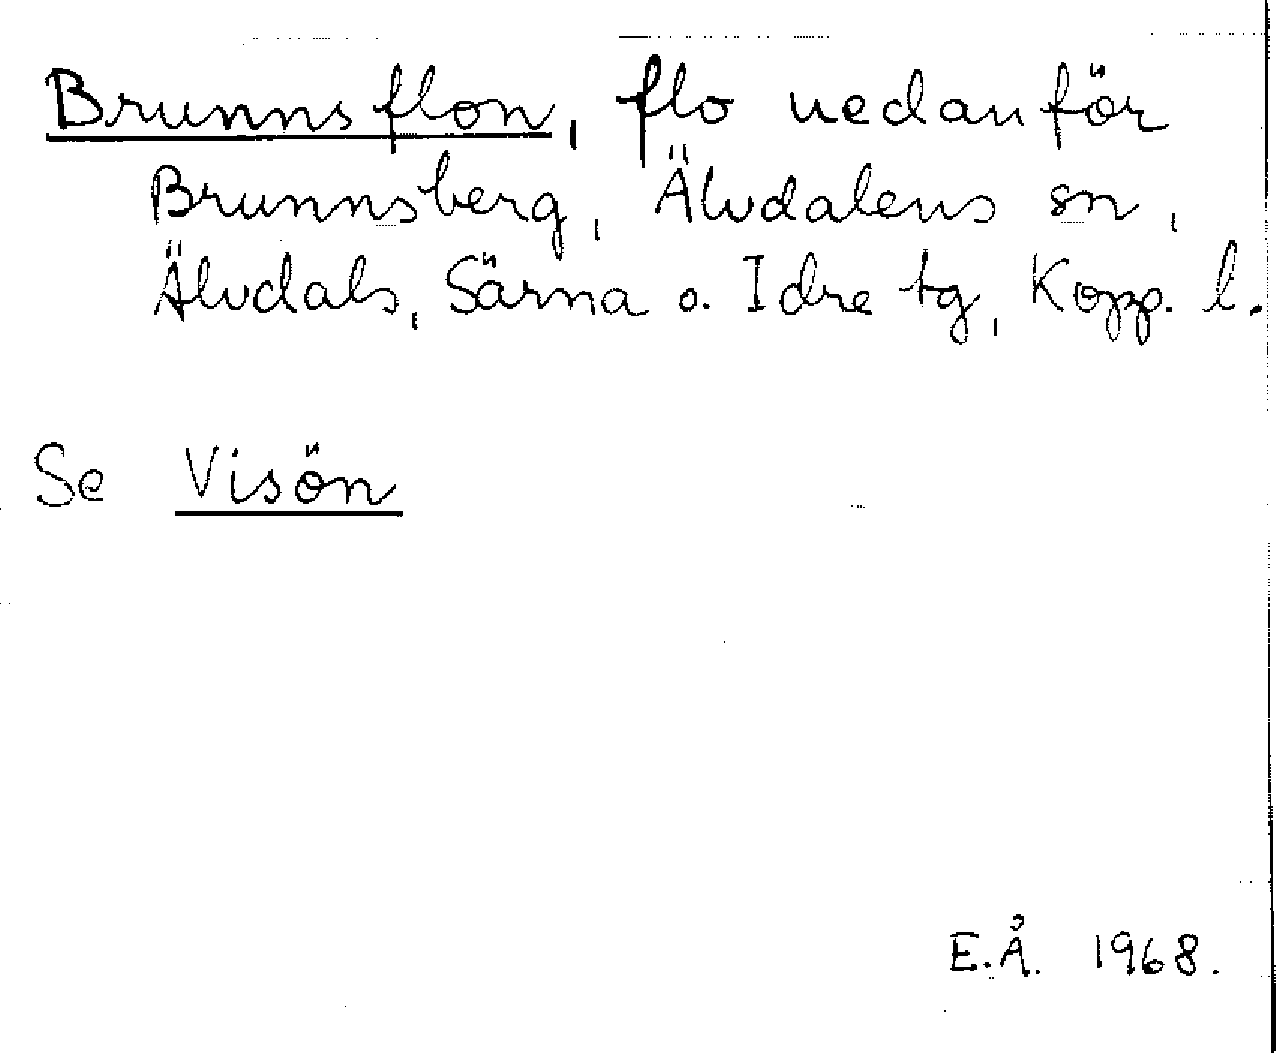 Brunnsflon, flo nedanför
Brunnsberg, Älvdalens sn,
Älvdals, Särna o. Idre tg, Kopp. l.
Se Visön
E.Å. 1968.